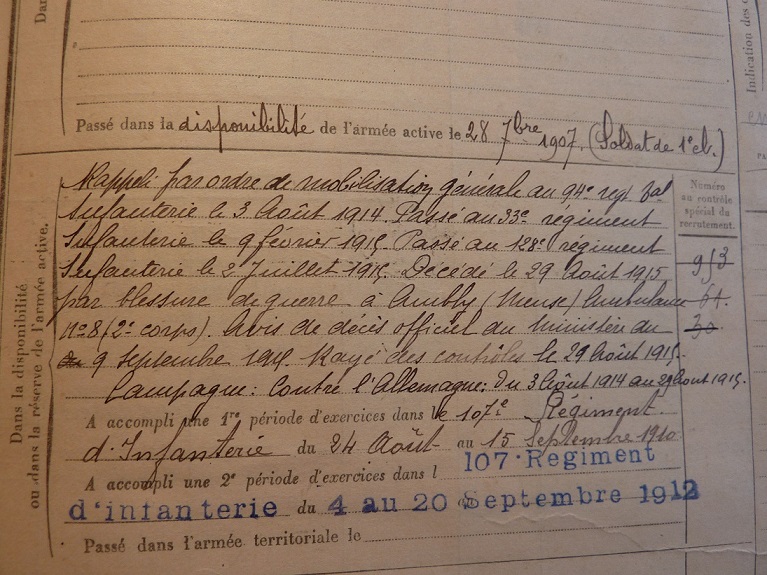 Dan
Indication des c
Passé dans la disponibilité de l'armée active le 28 7bre 1907. (Soldat de 1e cl.)
Dans la disponibilité
ou dans la réserve de l'armée active.
Rappelé par ordre de mobilisation générale au 94e regt
Infanterie le 3 Août 1914. Passé au 33e régiment
Infanterie le 9 février 1915. Passé au 128e régiment
Infanterie le 2 Juillet 1915. Décédé le 29 Août 1915
par blessure de guerre à Ambly (Meuse) Ambulance
n°8 (2e corps). Avis de décès officiel du Ministère du
9 Septembre 1915. Rayé des contrôles le 29 Août 1915.
Campagne: Contre l'Allemagne: du 3 Août 1914 au 29 Août 1915.
Numéro
au contrôle
spécial du
recrutement.
953
61.
30
A accompli une 1re période d'exercices dans le 107e Régiment
d'Infanterie du 24 Août au 15 Septembre 1910
A accompli une 2e période d'exercices dans l 107 Regiment
d'infanterie du 4 au 20 Septembre 1912
Passé dans l'armée territoriale le